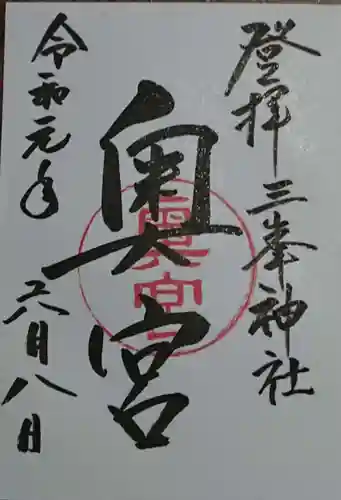 登拝 三峯神社
奥宮
奥宮
令和元年
六月八日